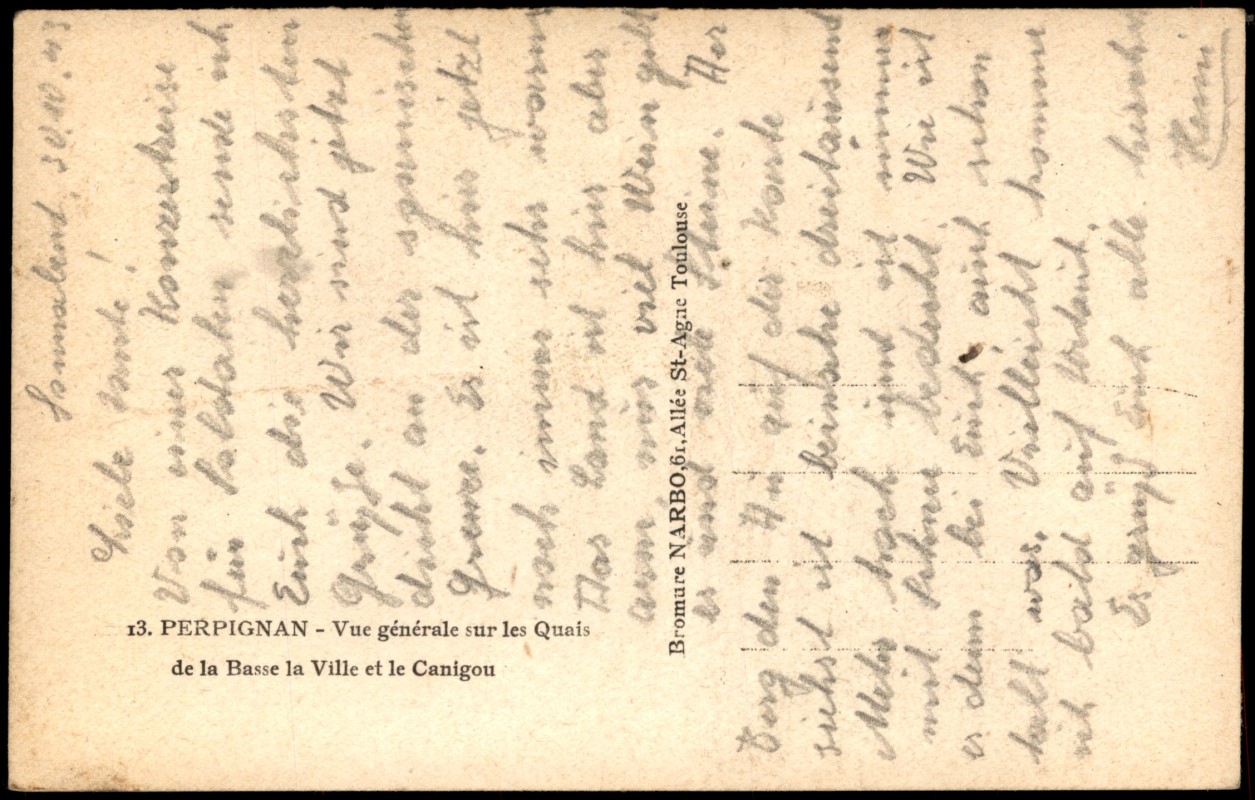 30.10.43
Liebe Tante!
Von einer Konzertreise
für Soldaten sende ich
Euch die herzlichsten
Grüße. Wir sind jetzt
dicht an der spanischen
Grenze. Es ist hier jetzt
noch immer sehr warm
Das Land ist hier aber
arm nur viel Wein gibt
es und Der
Berg den Du auf der Karte
siehst ist beinahe dreitausend
Meter hoch und ist immer
mit Schnee bedeckt. Wie ist
es denn bei Euch auch schon
kalt was. Vielleicht komme
ich bald auf Urlaub.
Es grüßt Euch alle herzlich
Heini
13. PERPIGNAN - Vue générale sur les Quais
de la Basse la Ville et le Canigou
Bromure NARBO, 61, Allée St-Agne Toulouse